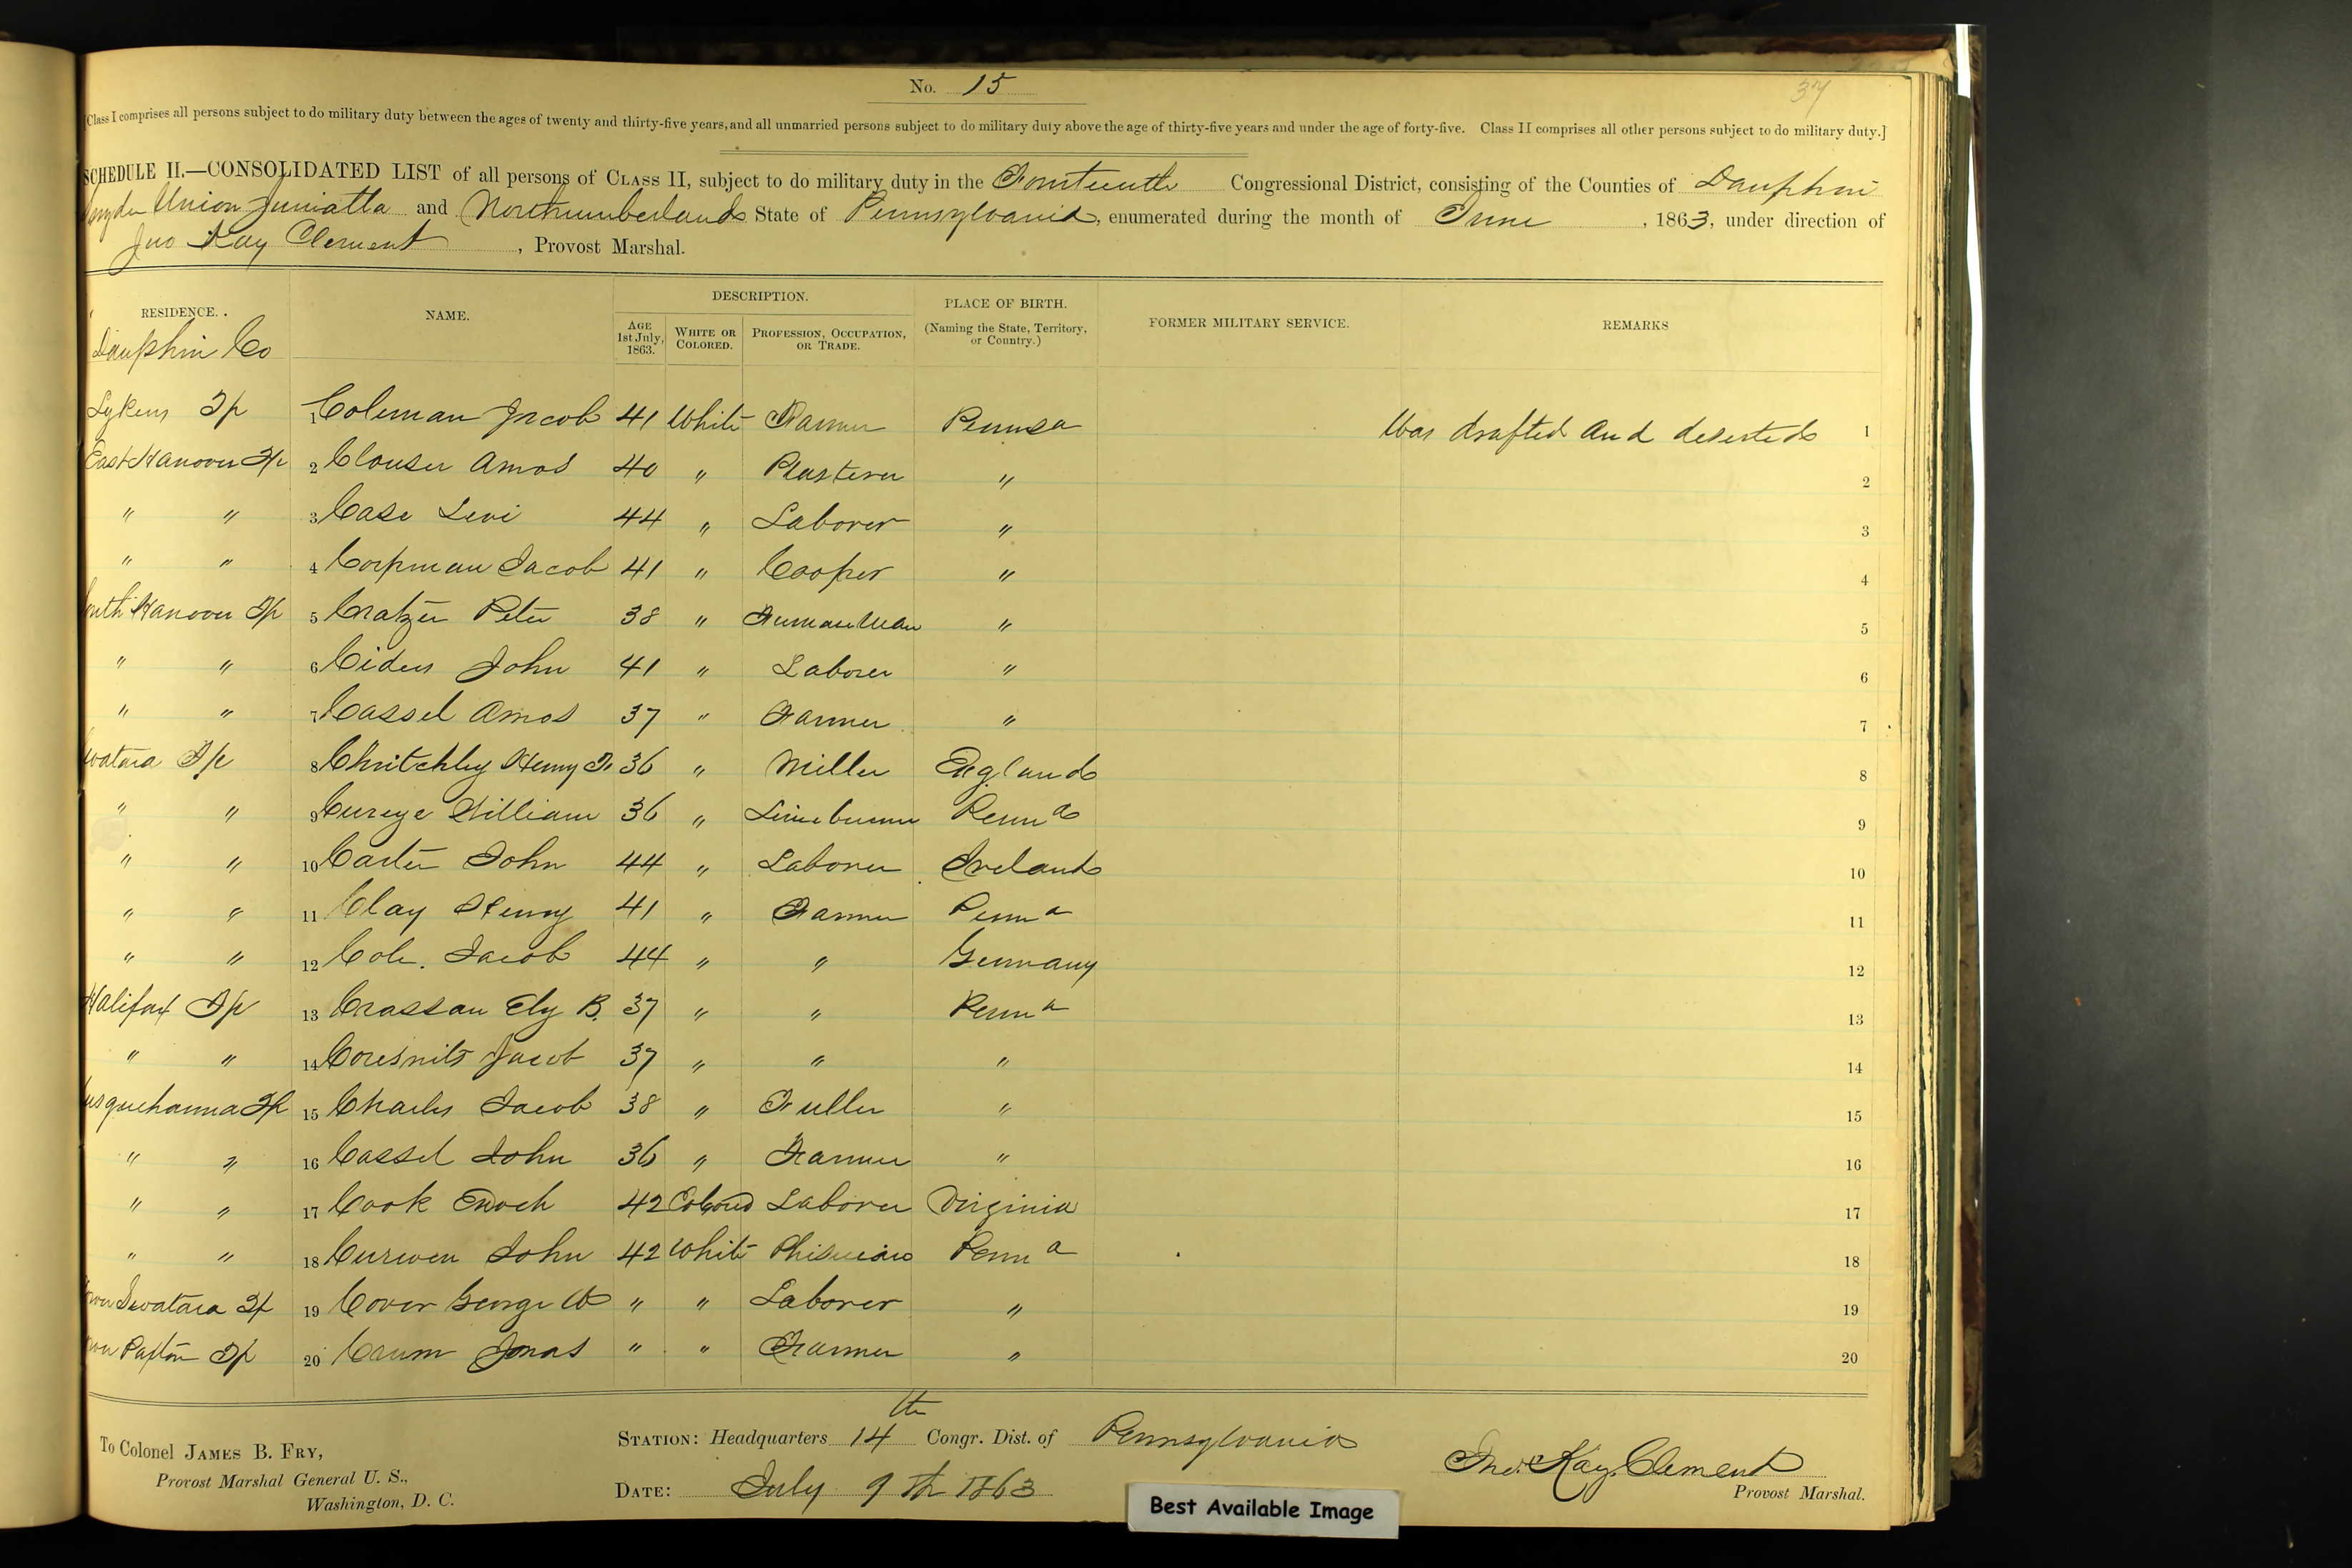 No. 15
37
[Class I comprises all persons subject to do military duty between the ages of twenty and thirty-five years, and all unmarried persons subject to do military duty above the age of thirty-five years and under the age of forty-five. Class II comprises all other persons subject to do military duty.]
SCHEDULE II.—CONSOLIDATED LIST of all persons of CLASS II, subject to do military duty in the Fourteenth Congressional District, consisting of the Counties of Dauphin
Snyder Union Juniatta and Northumberland State of Pennsylvania, enumerated during the month of June, 1863, under direction of
Jno Kay Clement, Provost Marshal.
RESIDENCE. NAME. DESCRIPTION. PLACE OF BIRTH. FORMER MILITARY SERVICE. REMARKS
AGE 1st July, 1863. WHITE OR COLORED. PROFESSION, OCCUPATION, OR TRADE. (Naming the State, Territory, or Country.)
Dauphin Co
Lykens Tp 1 Coleman Jacob 41 White Farmer Pennsa Was drafted and deserted 1
East Hanover Tp 2 Clouser Amos 40 " Plasterer " 2
" " 3 Case Levi 44 " Laborer " 3
" " 4 Corpman Jacob 41 " Cooper " 4
South Hanover Tp 5 Cratzer Peter 38 " " 5
" " 6 John 41 " Laborer " 6
" " 7 Cassel Amos 37 " Farmer " 7
Swatara Tp 8 Chritchley Henry 36 " Miller England 8
" " 9 William 36 " Penna 9
" " 10 Carter John 44 " Laborer Ireland 10
" " 11 Clay Henry 41 " Farmer Penna 11
" " 12 Cole. Jacob 44 " " Germany 12
Halifax Tp 13 Crassan Ely B. 37 " " Penna 13
" " 14 Jacob 37 " " " 14
Susquehanna Tp 15 Charles Jacob 38 " Fuller " 15
" " 16 Cassel John 36 " Farmer " 16
" " 17 Cook Enoch 42 Colored Laborer Virginia 17
" " 18 Curwen John 42 White Phisician Penna 18
Swatara Tp 19 Cover George W " " Laborer " 19
Paxton Tp 20 Caum Jonas " " Farmer " 20
To Colonel JAMES B. FRY,
Provost Marshal General U. S.,
Washington, D. C.
STATION: Headquarters 14th Congr. Dist. of Pennsylvania
DATE: July 9th 1863
Jno. Kay. Clement
Provost Marshal.
Best Available Image